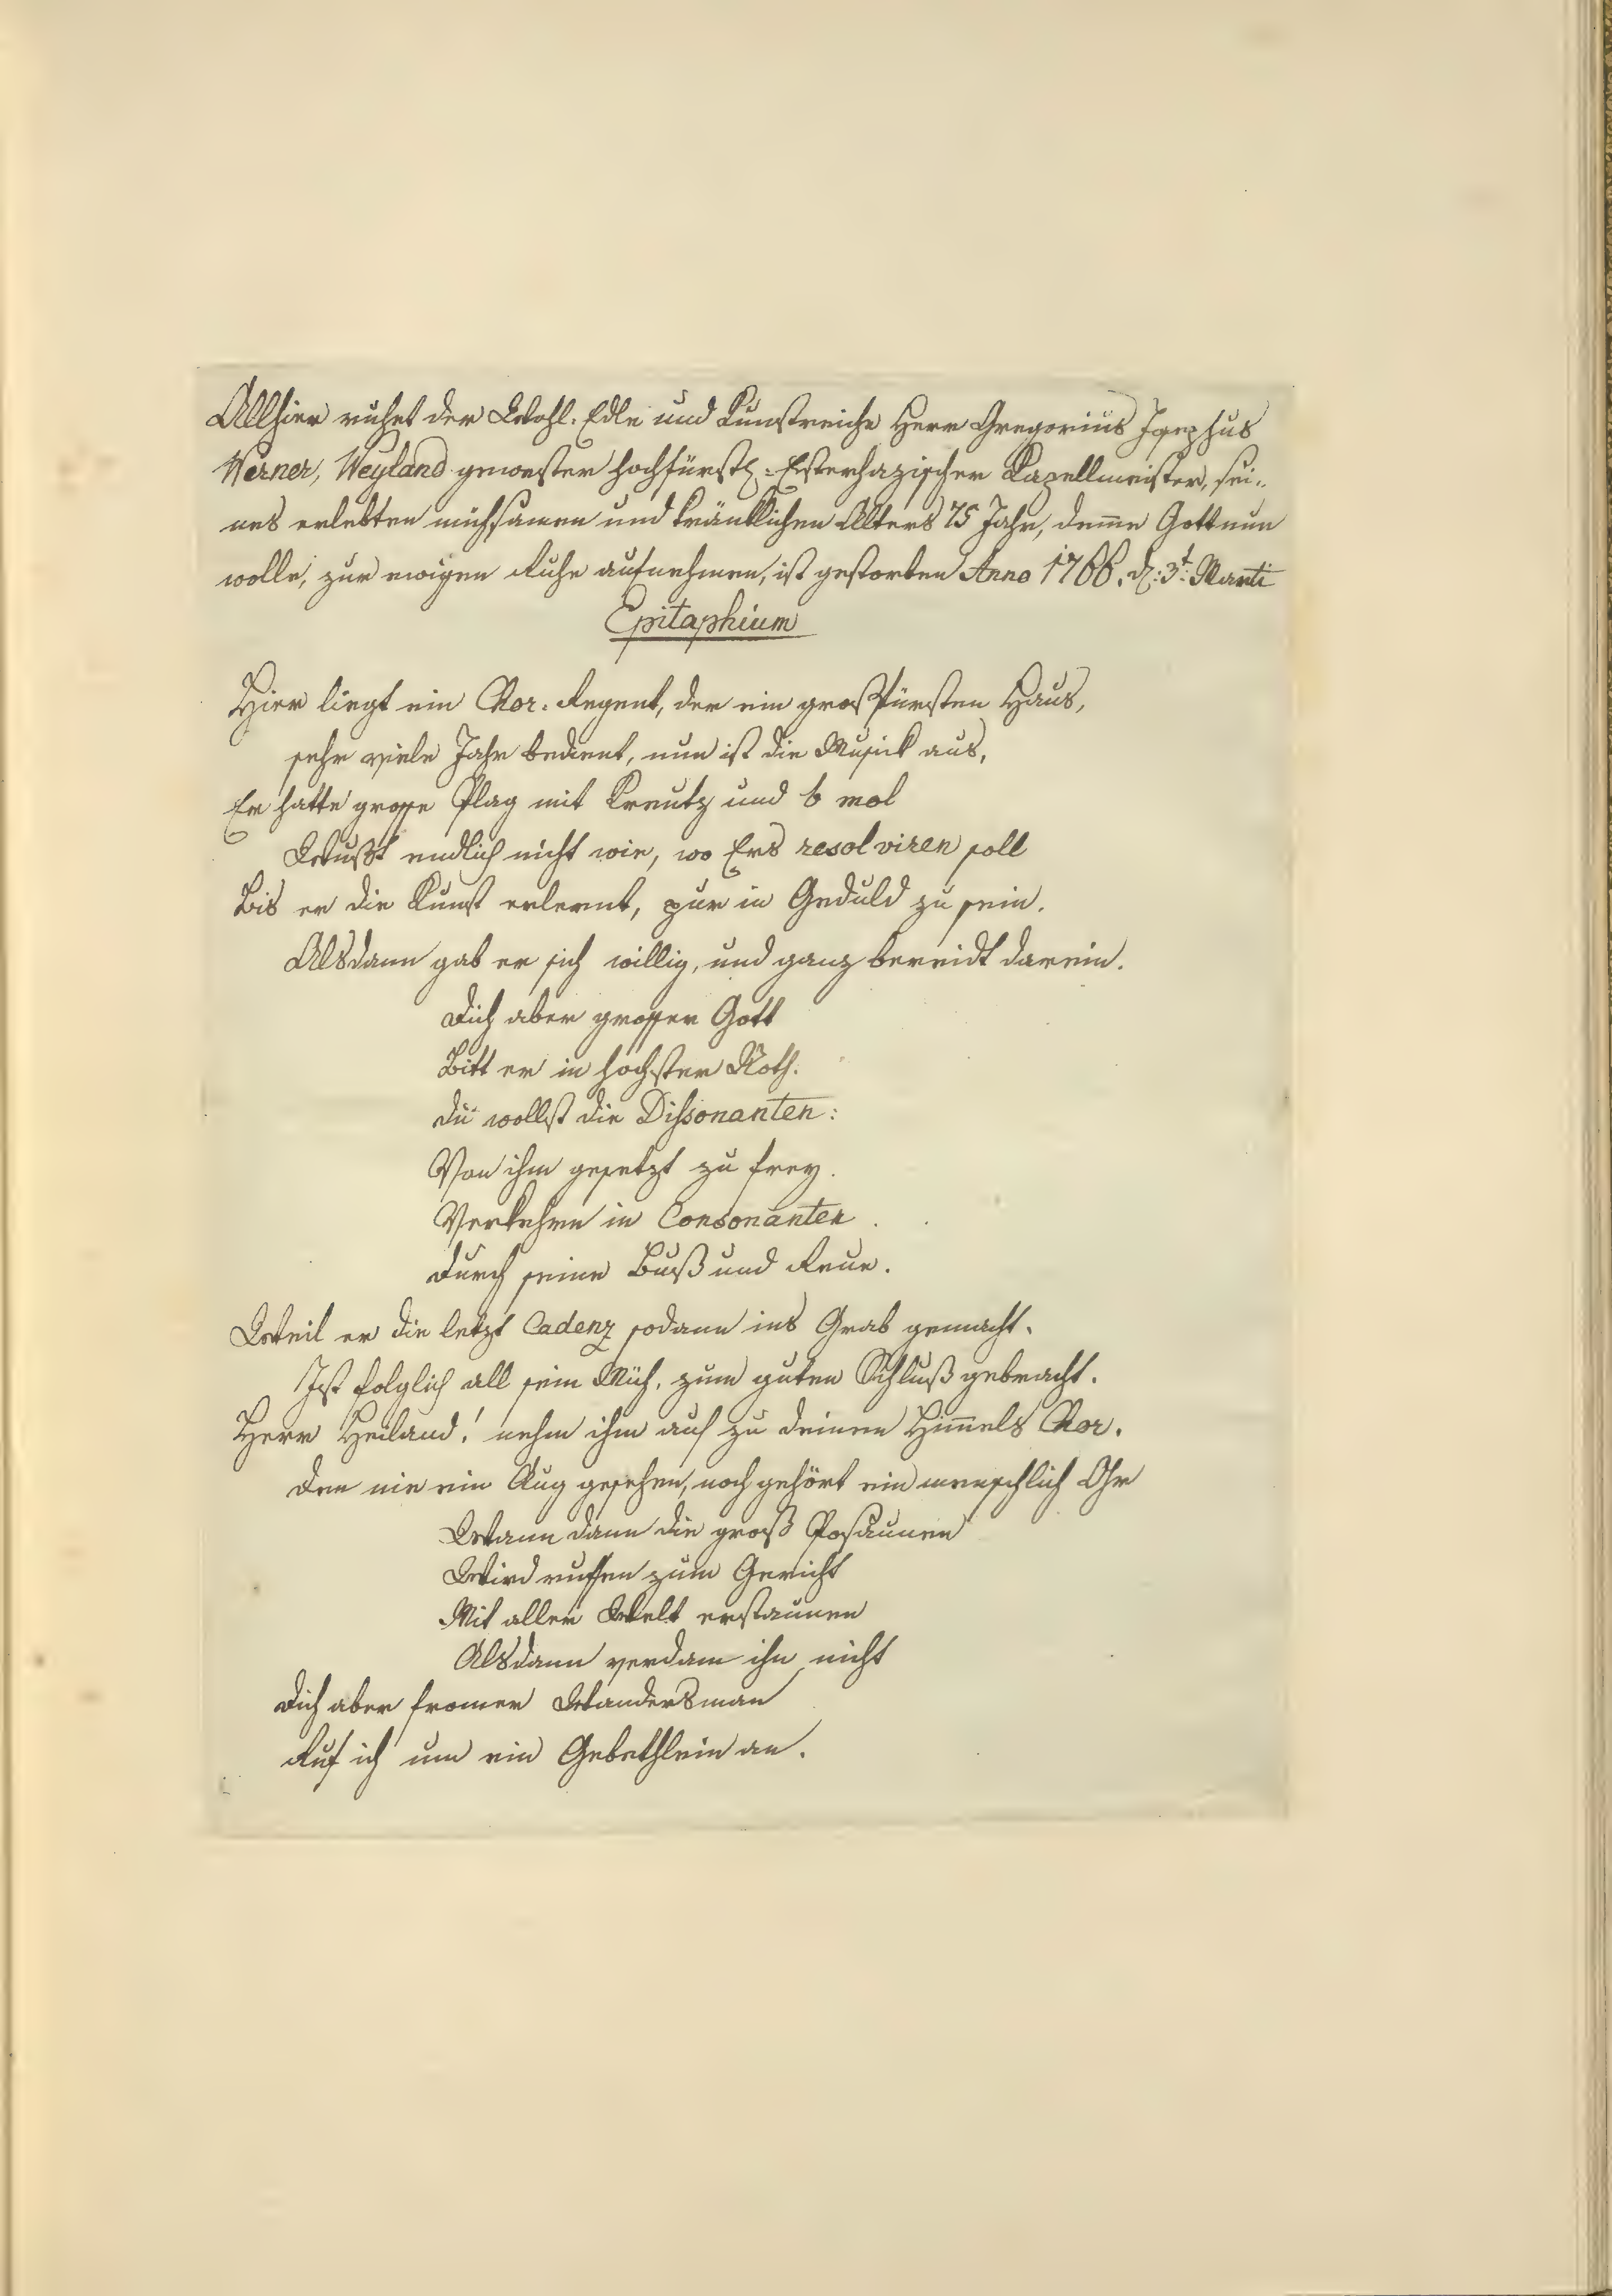 Allhier ruhet der Wohl. Edle und Kunstreiche Herr Gregorius Josephus
Werner, Weyland gewester hochfürstl: Esterhazischer Kapellmeister, sei-
nes erlebten mühsamen und kränklichen Alters 75 Jahr, deme Gott nun
wolle, zur ewigen Ruhe aufnehmen, ist gestorben Anno 1766. d: 3t: Marti
Epitaphium
Hier liegt ein Chor. Regent, der ein groß Fürsten Haus,
sehr viele Jahr bedient, nun ist die Musick aus,
Er hatte grosse Plag mit Kreutz und b mol
Wußt endlich nicht wie, wo Ers resolviren soll
Bis er die Kunst erlernt, pur in Geduld zu sein.
Alsdann gab er sich willig, und ganz bereidt darein.
Dich aber grosser Gott
Bitt er in höchster Noth.
Du wollst die Dissonanten:
Von ihm gesetzt zu frey.
Verkehren in Consonanten.
Durch seine Buß und Reue.
Weil er die letzt Cadenz sodann ins Grab gemacht.
Ist folglich all sein Müh, zum guten Schluß gebracht.
Herr Heiland! nehm ihm auf zu deinen Him̄els Chor.
Den nie ein Aug gesehen, noch gehört ein menschlich Ohr
Wann dann die groß Posaunen
Wird ruffen zum Gericht
Mit aller Welt erstaunen
Alsdann verdam ihn nicht
Dich aber fromer Wandersman
Ruf ich um ein Gebethlein an.